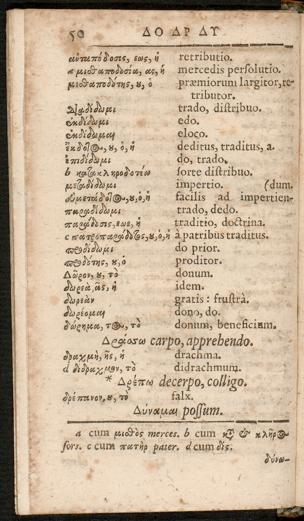 50 ΔΟ ΔΡ ΔΥ
ἀνταπόδοσις, εως, ἡ retributio.
a μισθαποδοσία, ας, ἡ mercedis persolutio.
μισθαποδότης, ȣ, ὁ præmiorum largitor, re-
tributor.
διαδίδωμι trado, distribuo.
ἐκδίδωμι edo.
ἐκδίδομαι eloco.
ἔκδοτος, ȣ, ὁ, ἡ deditus, traditus, a.
ἐπιδίδωμι do, trado.
b κατακληροδοτέω sorte distribuo.
μεταδίδωμι impertio. (dum.
εὐμετάδοτος, ȣ, ὁ, ἡ facilis ad impertien-
παραδίδωμι trado, dedo.
παράδοσις, εως, ἡ traditio, doctrina.
c πατροπαράδοτος, ȣ, ὁ, ἡ à patribus traditus.
προδίδωμι do prior.
προδότης, ȣ, ὁ proditor.
Δῶρον, ȣ, τὸ donum.
δωρεὰ, ᾶς, ἡ idem.
δωρεὰν gratis: frustrà.
δωρέομαι dono, do.
δώρημα, τος, τὸ donum, beneficium.
Δράσσω carpo, apprehendo.
δραχμὴ, ῆς, ἡ drachma.
d δίδραχμον, τὸ didrachmum.
* Δρέπω decerpo, colligo.
δρέπανον, ȣ, τὸ falx.
Δύναμαι possum.
a cum μισθὸς merces. b cum κατὰ & κλῆρος
sors. c cum πατὴρ pater. d cum δὶς.
δύνα-